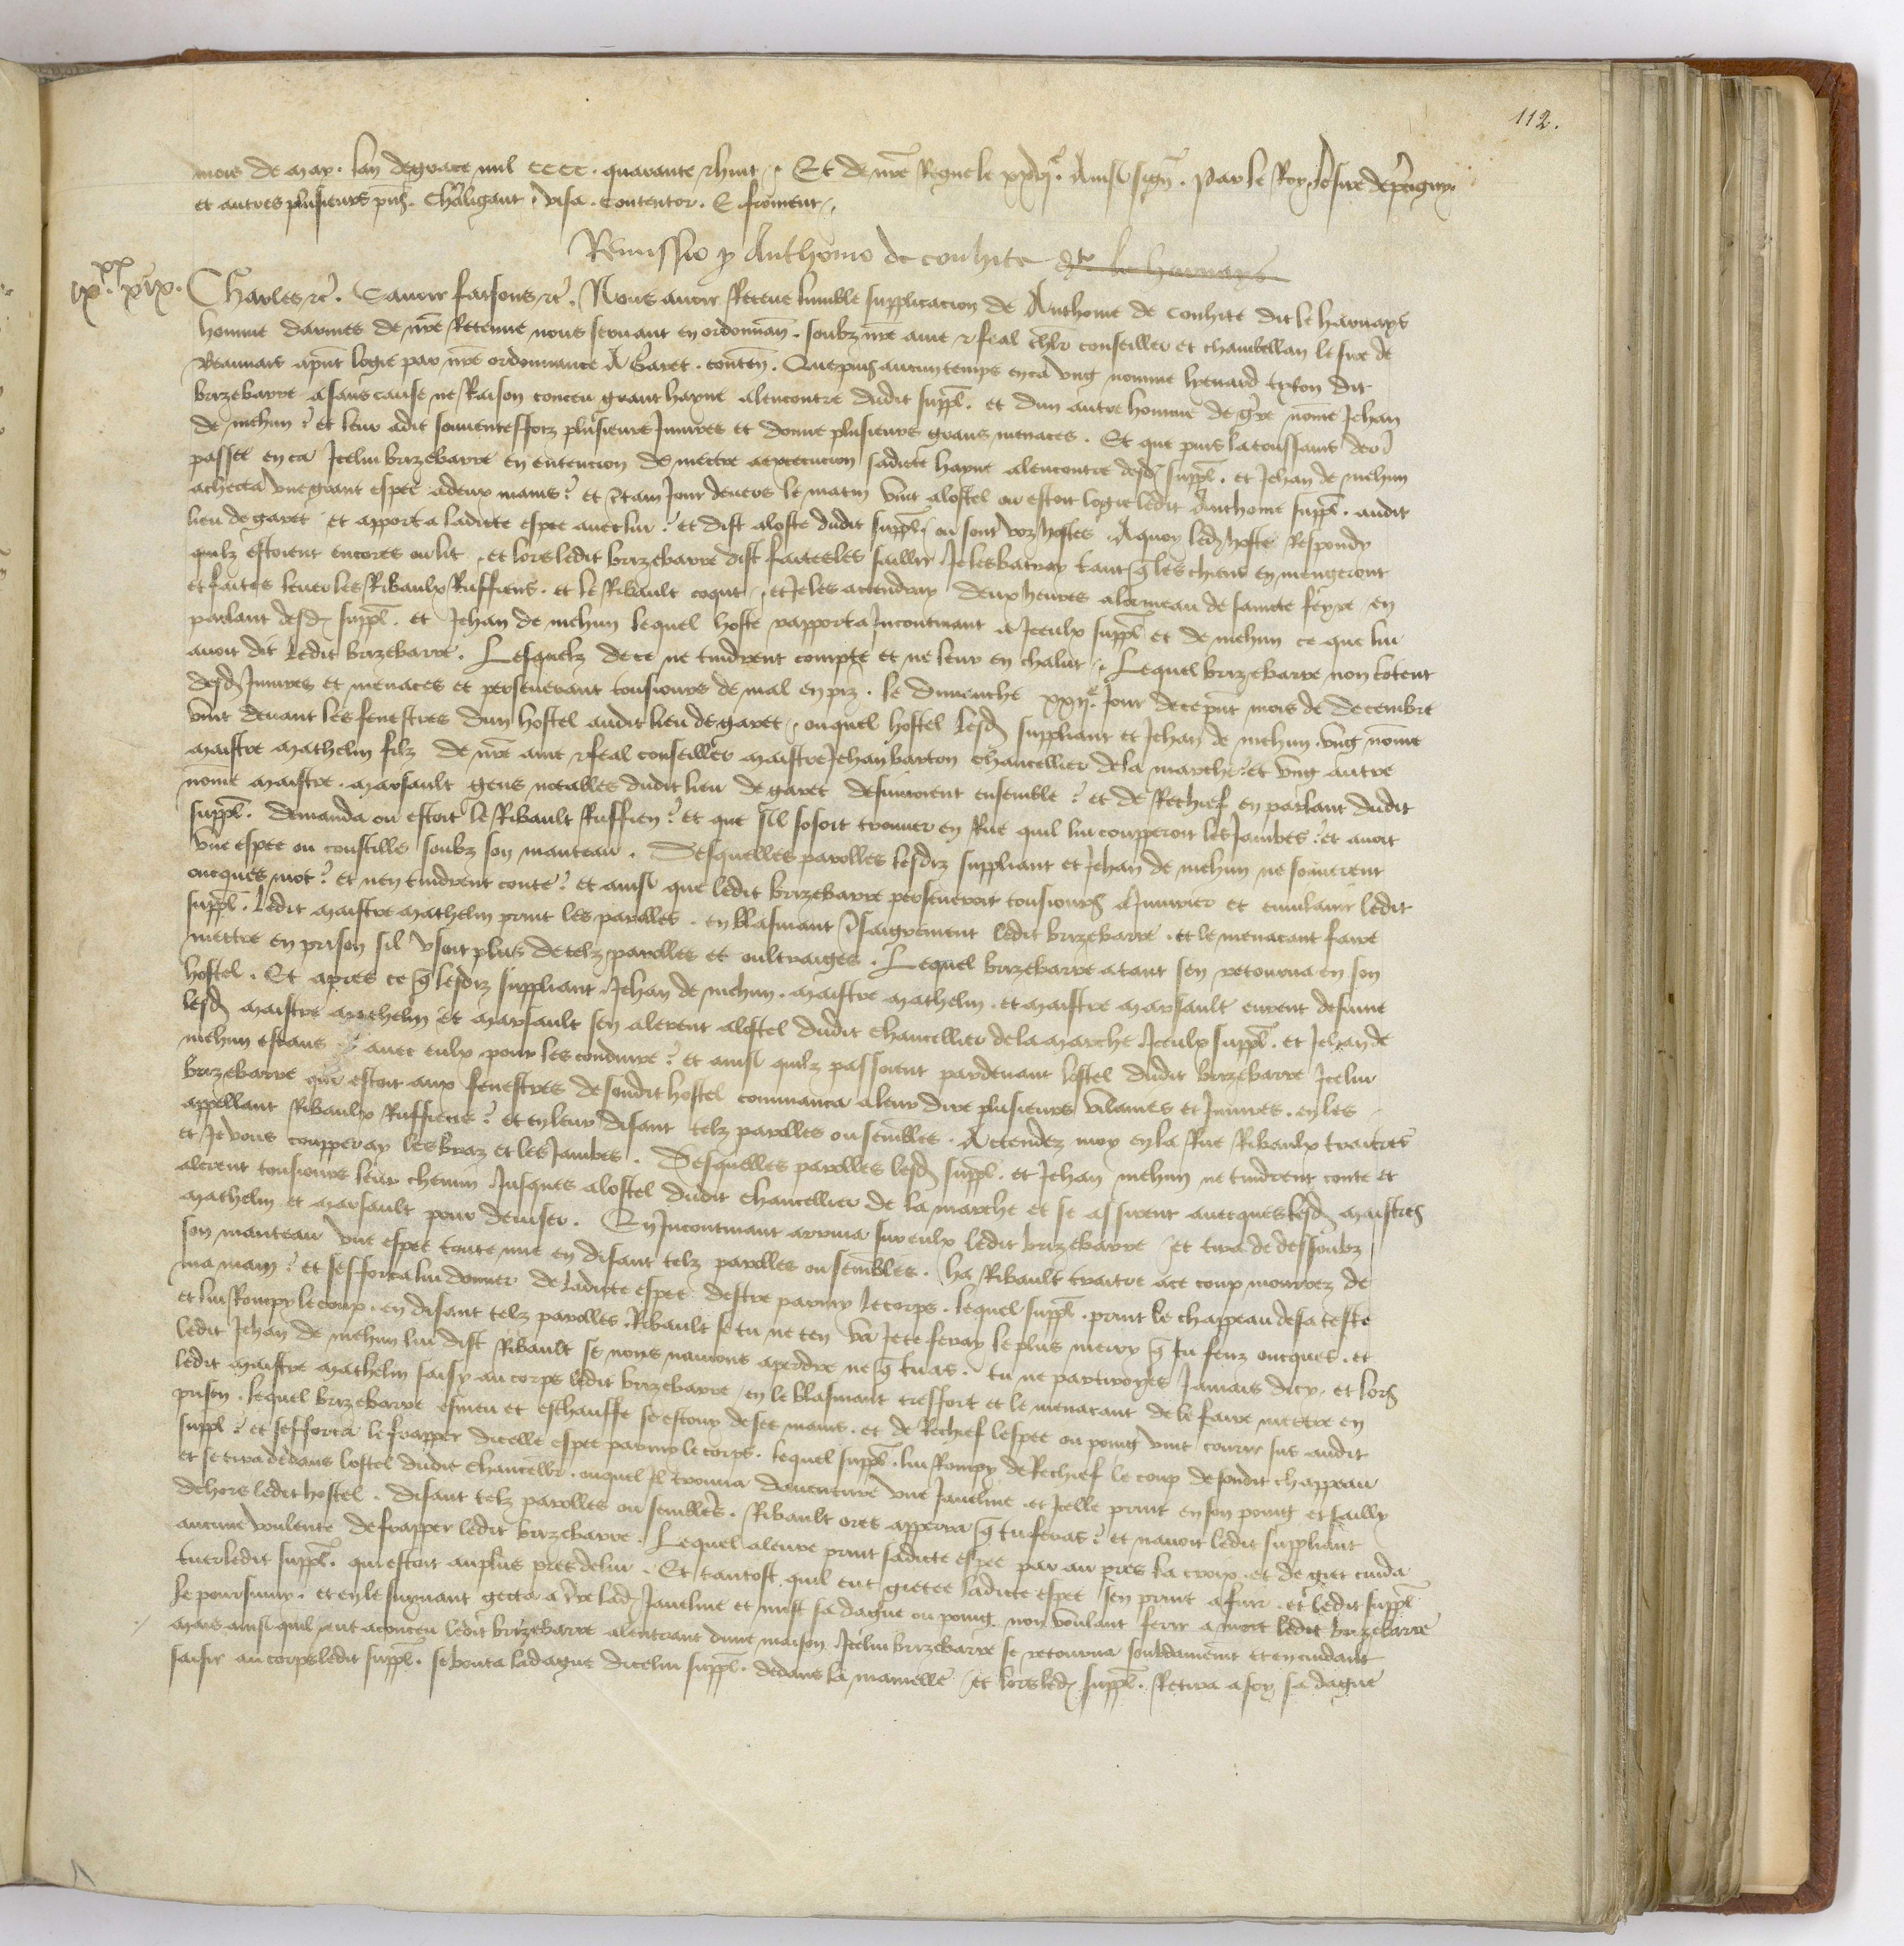 112.
mois de may. lan de grace mil cccc. quarante & huit. Et de nre Regne le xxvi^e. Ainsi sign. Par le Roy le sire de precigny
et autres plusieurs pns. Chaligaut. visa. contentor. E. froment.
Remissio p Anthonio de couhite dto le harnays
ix^xx xix.
Charles &c. Savoir faisons &c. Nous avoir Receue lumble supplicacion de Anthoine de Couhite dit le harnays
homme darmes de nre Retenue nous servant en ordonnan. soubz nre ame & feal chlr conseiller et chambellan le sire de
Beauvais apnt logie par nre ordonnance A Garet. conten. Que puis aucun temps enca ung nomme lienard tixon dit
brizebarre a sans cause ne Raison conceu grant hayne alencontre dudit suppl. et dun autre homme de gre nome Jehan
de mehun et leur adit souventesfoiz plusieurs Injures et donne plusieurs grans menaces. Et que puis la toussains derr
passee en ca Icelui brizebarre en entencion de mettre a execucion sadicte hayne alencontre desd suppl. et Jehan de mehun
achecta une grant espee adeux mains et certain Jour devers le matin vint alostel ou estoit logie ledit Anthoine suppl. audit
lieu de garet et apporta ladicte espee avec lui et dist aloste dudit suppl. ou sont voz hostes. Aquoy led hoste Respondy
quilz estoient encores ou lit. et lors ledit brizebarre dist faites les saillir Je les batray tant q les chiens en mengeront
et faites lever les Ribaulx Ruffiens. et le Ribault coqut. et Je les actendray deux heures alormeau de saincte feyre en
parlant desd suppl. et Jehan de mehun lequel hoste rapporta Incontinant a Iceulx suppl et de mehun ce que lui
avoit dit ledit brizebarre. Lesquelz de ce ne tindrent compte et ne leur en chalut. Lequel brizebarre non cotent
desd Injures et menaces et perseverant tousjours de mal en piz. le dimenche xxii^e. Jour de ce pnt mois de Decembre
vint devant les fenestres dun hostel audit lieu de garet, ouquel hostel lesd suppliant et Jehan de mehun. ung nome
maistre mathelin filz de nre ame & feal conseiller maistre Jehan barton chancellier dela marche et ung autre
nome maistre marsault gens notables dudit lieu de garet desiunoient ensemble et de Rechief en parlant dudit
suppl. demanda ou estoit le Ribault Ruffien et que sil sosoit trouver en Rue quil lui coupperoit les Jambes et avoit
une espee ou coustille soubz son manteau. Desquelles parolles lesdiz suppliant et Jehan de mehun ne sonnerent
oncques mot et nen tindrent conte et ainsi que ledit brizebarre perseveroit tousjours a Injurier et vinlanir ledit
suppl. Ledit maistre mathelin print les parolles en blasmant tresaigrement ledit brizebarre. et le menacant faire
mettre en prison sil usoit plus de telz parolles et oultraiges. Lequel brizebarre atant sen retourna en son
hostel. Et apres ce q lesdiz suppliant Jehan de mehun. maistre mathelin. et maistre marsault eurent desiune
lesd maistre mathelin et marsault sen alerent alostel dudit chancellier dela marche Iceulx suppl. et Jehan de
mehun estans avec eulx pour les conduire et ainsi quilz passoient pardevant lostel dudit brizebarre Icelui
brizebarre qui estoit aux fenestres de sondit hostel commanca aleur dire plusieurs vilanies et Injures. en les
appellant Ribaulx Ruffiens et en leur disant telz parolles ou sembles. Actendez moy en la Rue Ribaulx traitres
et Je vous coupperay les braz et les Jambes. Desquelles parolles lesd suppl. et Jehan mehun ne tindrent conte et
alerent tousjours leur chemin Jusques alostel dudit chancellier de la marche et se assirent avecques lesd maistres
mathelin et marsault pour deviser. Et Incontinant arriva sur eulx ledit brizebarre et tira de dessoubz
son manteau une espee toute nue en disant telz parolles ou sembles. ha Ribault traitre ace coup mourrez de
ma main et sefforca lui donner de ladicte espee destoc parmy le corps. lequel suppl. print le chappeau de sa teste
et lui Rompy le coup. en disant telz parolles. Ribault se tu ne ten va Je te feray le plus mary q tu feuz oncques. et
ledit Jehan de mehun lui dist Ribault se nous navions aperdre ne q tu as. tu ne partiroyes Jamais dicy. et lors
ledit maistre mathelin saisy au corps ledit brizebarre en le blasmant tresfort et le menacant dele faire mettre en
prison. Lequel brizebarre esmeu et eschauffe se escouy de ses mains. et de Rechief lespee ou poing vint courir sus audit
suppl et sefforca le frapper dicelle espee parmy le corps. lequel suppl. lui Rompy de Rechief le coup de sondit chappeau
et se tira dedans lostel dudit chancellr. ouquel Il trouva daventure une Javeline. et Icelle print en son poing et sailly
dehors ledit hostel. disant telz parolles ou sembles. Ribault ores apperra q tu feras et navoit ledit suppliant
aucune voulente de frapper ledit brizebarre. Lequel aleure print sadicte espee par au pres la croix. et de giet cuida
tuer ledit suppl. qui estoit au plus pres delui. Et tantost quil eut giettee ladicte espee sen print a fuir. et ledit suppl
le poursuivy. et en le suyvant gecta a tre lad Javeline et mist sa dague ou poing non voulant ferir a mort ledit brizebarre
mais ainsi quil eut aconceu ledit brizebarre alentrant dune maison Icelui brizebarre se retourna soubdainemt et en cuidant
saisir au corps ledit suppl. se bouta la dague dicelui suppl. dedans la mamelle et lors led suppl. Retira a soy sa dague